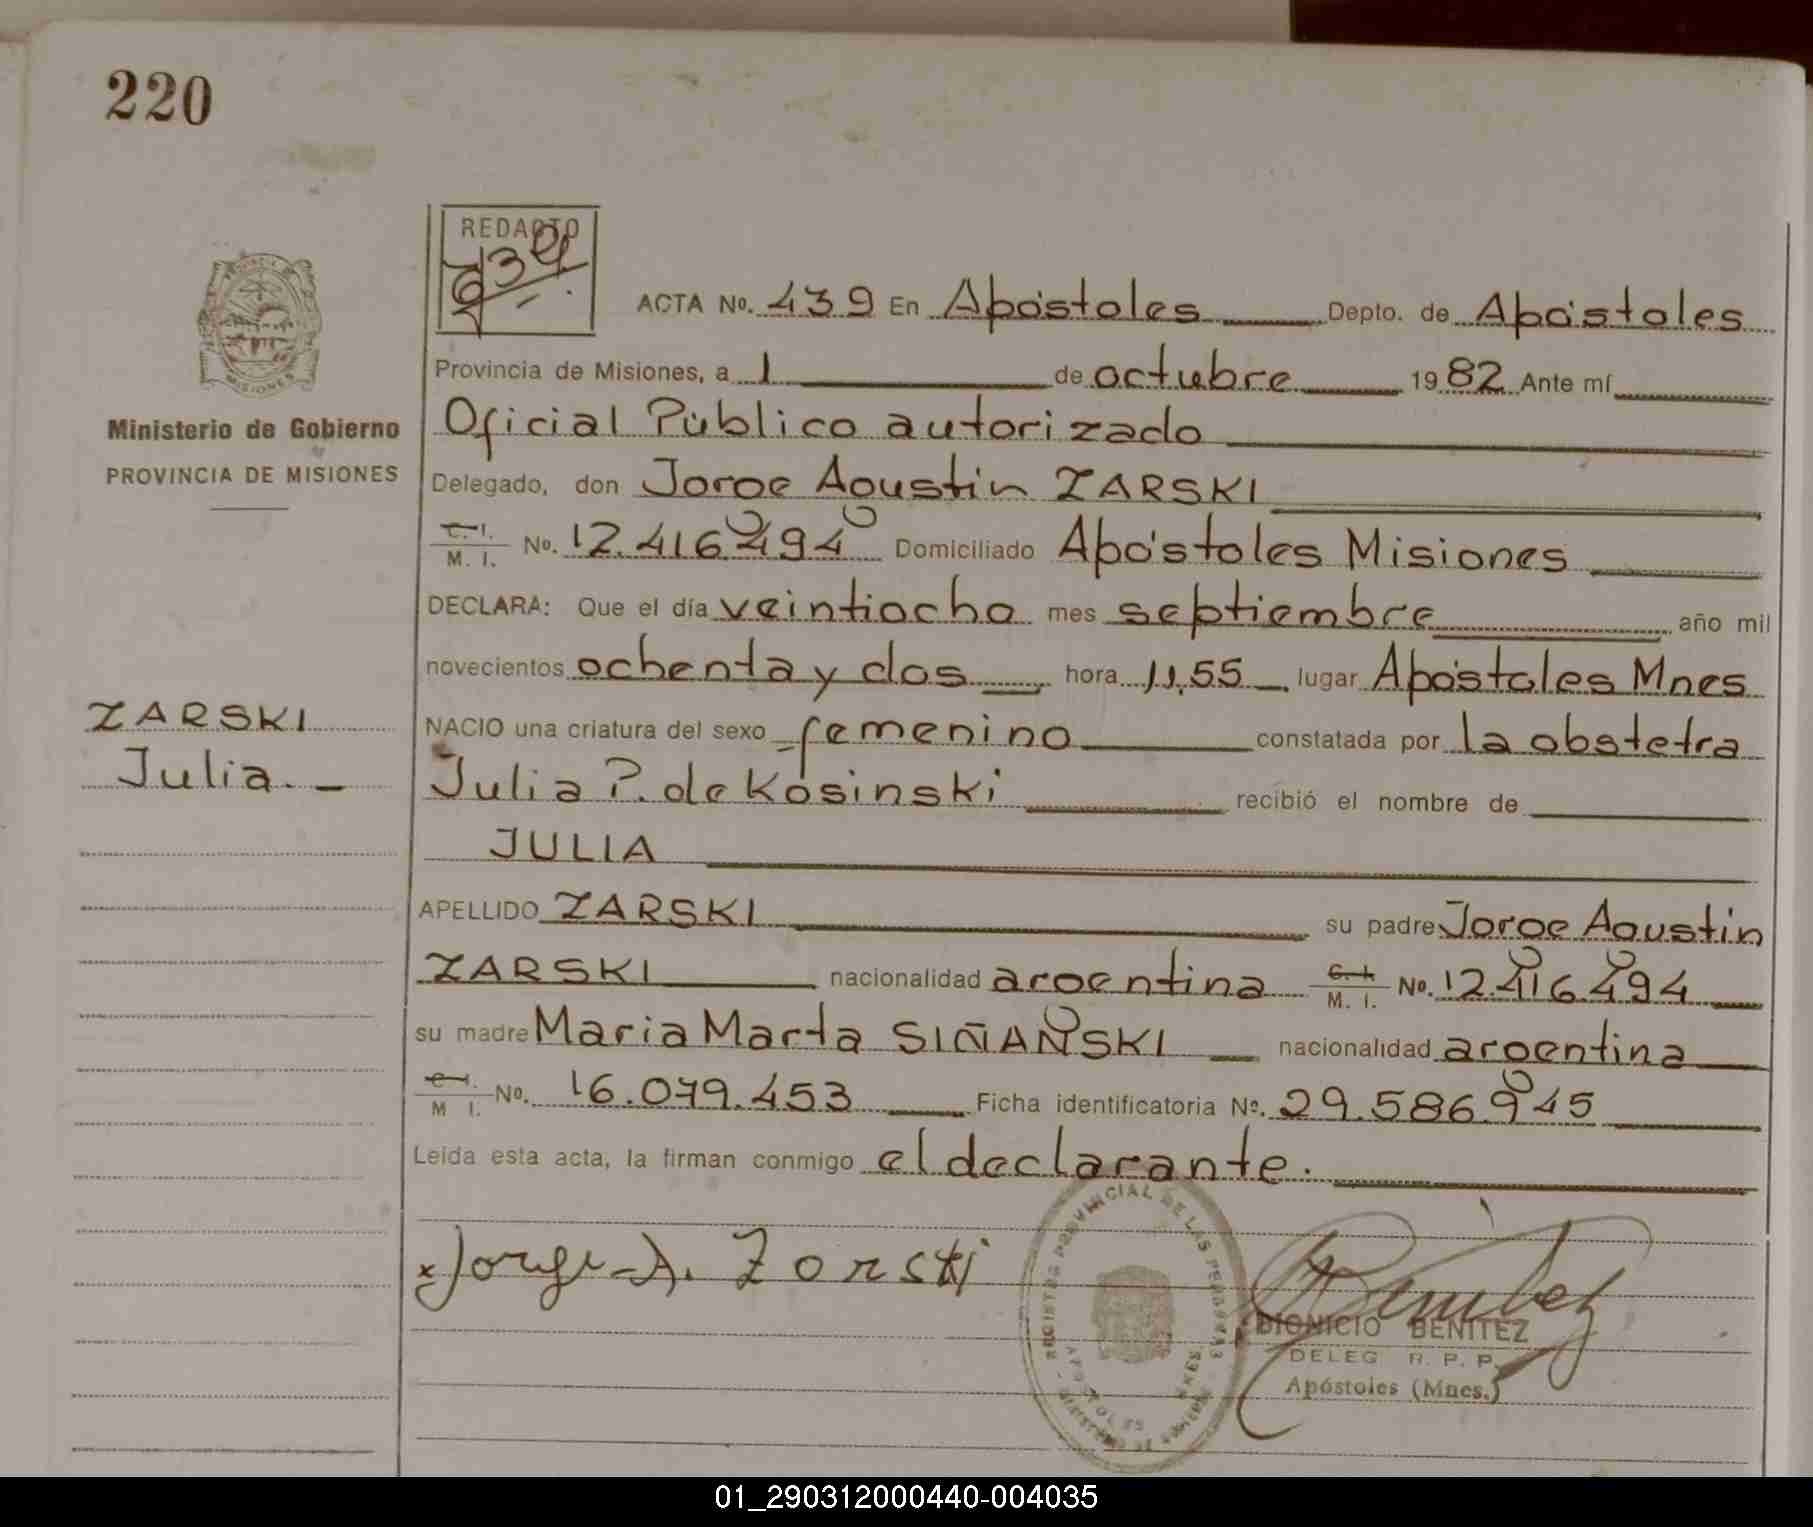 220
REDACTO
439
ACTA No. 439 En Apóstoles Depto. de Apóstoles
Provincia de Misiones, a 1 de octubre 1982 Ante mí
Ministerio de Gobierno
PROVINCIA DE MISIONES
Oficial Público autorizado
Delegado, don Jorge Agustin ZARSKI
C. I. M. I. No. 12.416.494 Domiciliado Apóstoles Misiones
DECLARA: Que el día veintiocho mes septiembre año mil
novecientos ochenta y dos hora 11,55 lugar Apóstoles Mnes
ZARSKI
Julia.
NACIO una criatura del sexo femenino constatada por la obstetra
Julia P. de Kosinski recibió el nombre de
JULIA
APELLIDO ZARSKI su padre Jorge Agustin
ZARSKI nacionalidad argentina C. I. M. I. No. 12.416.494
su madre Maria Marta SIÑAÑSKI nacionalidad argentina
C. I. M I. No. 16.079.453 Ficha identificatoria No. 29.586.945
Leída esta acta, la firman conmigo el declarante.
x Jorge A. Zarski
REGISTRO PROVINCIAL DE LAS PERSONAS
APOSTOLES
DIONICIO BENITEZ
DELEG R. P. P.
Apóstoles (Mnes.)
01_290312000440-004035